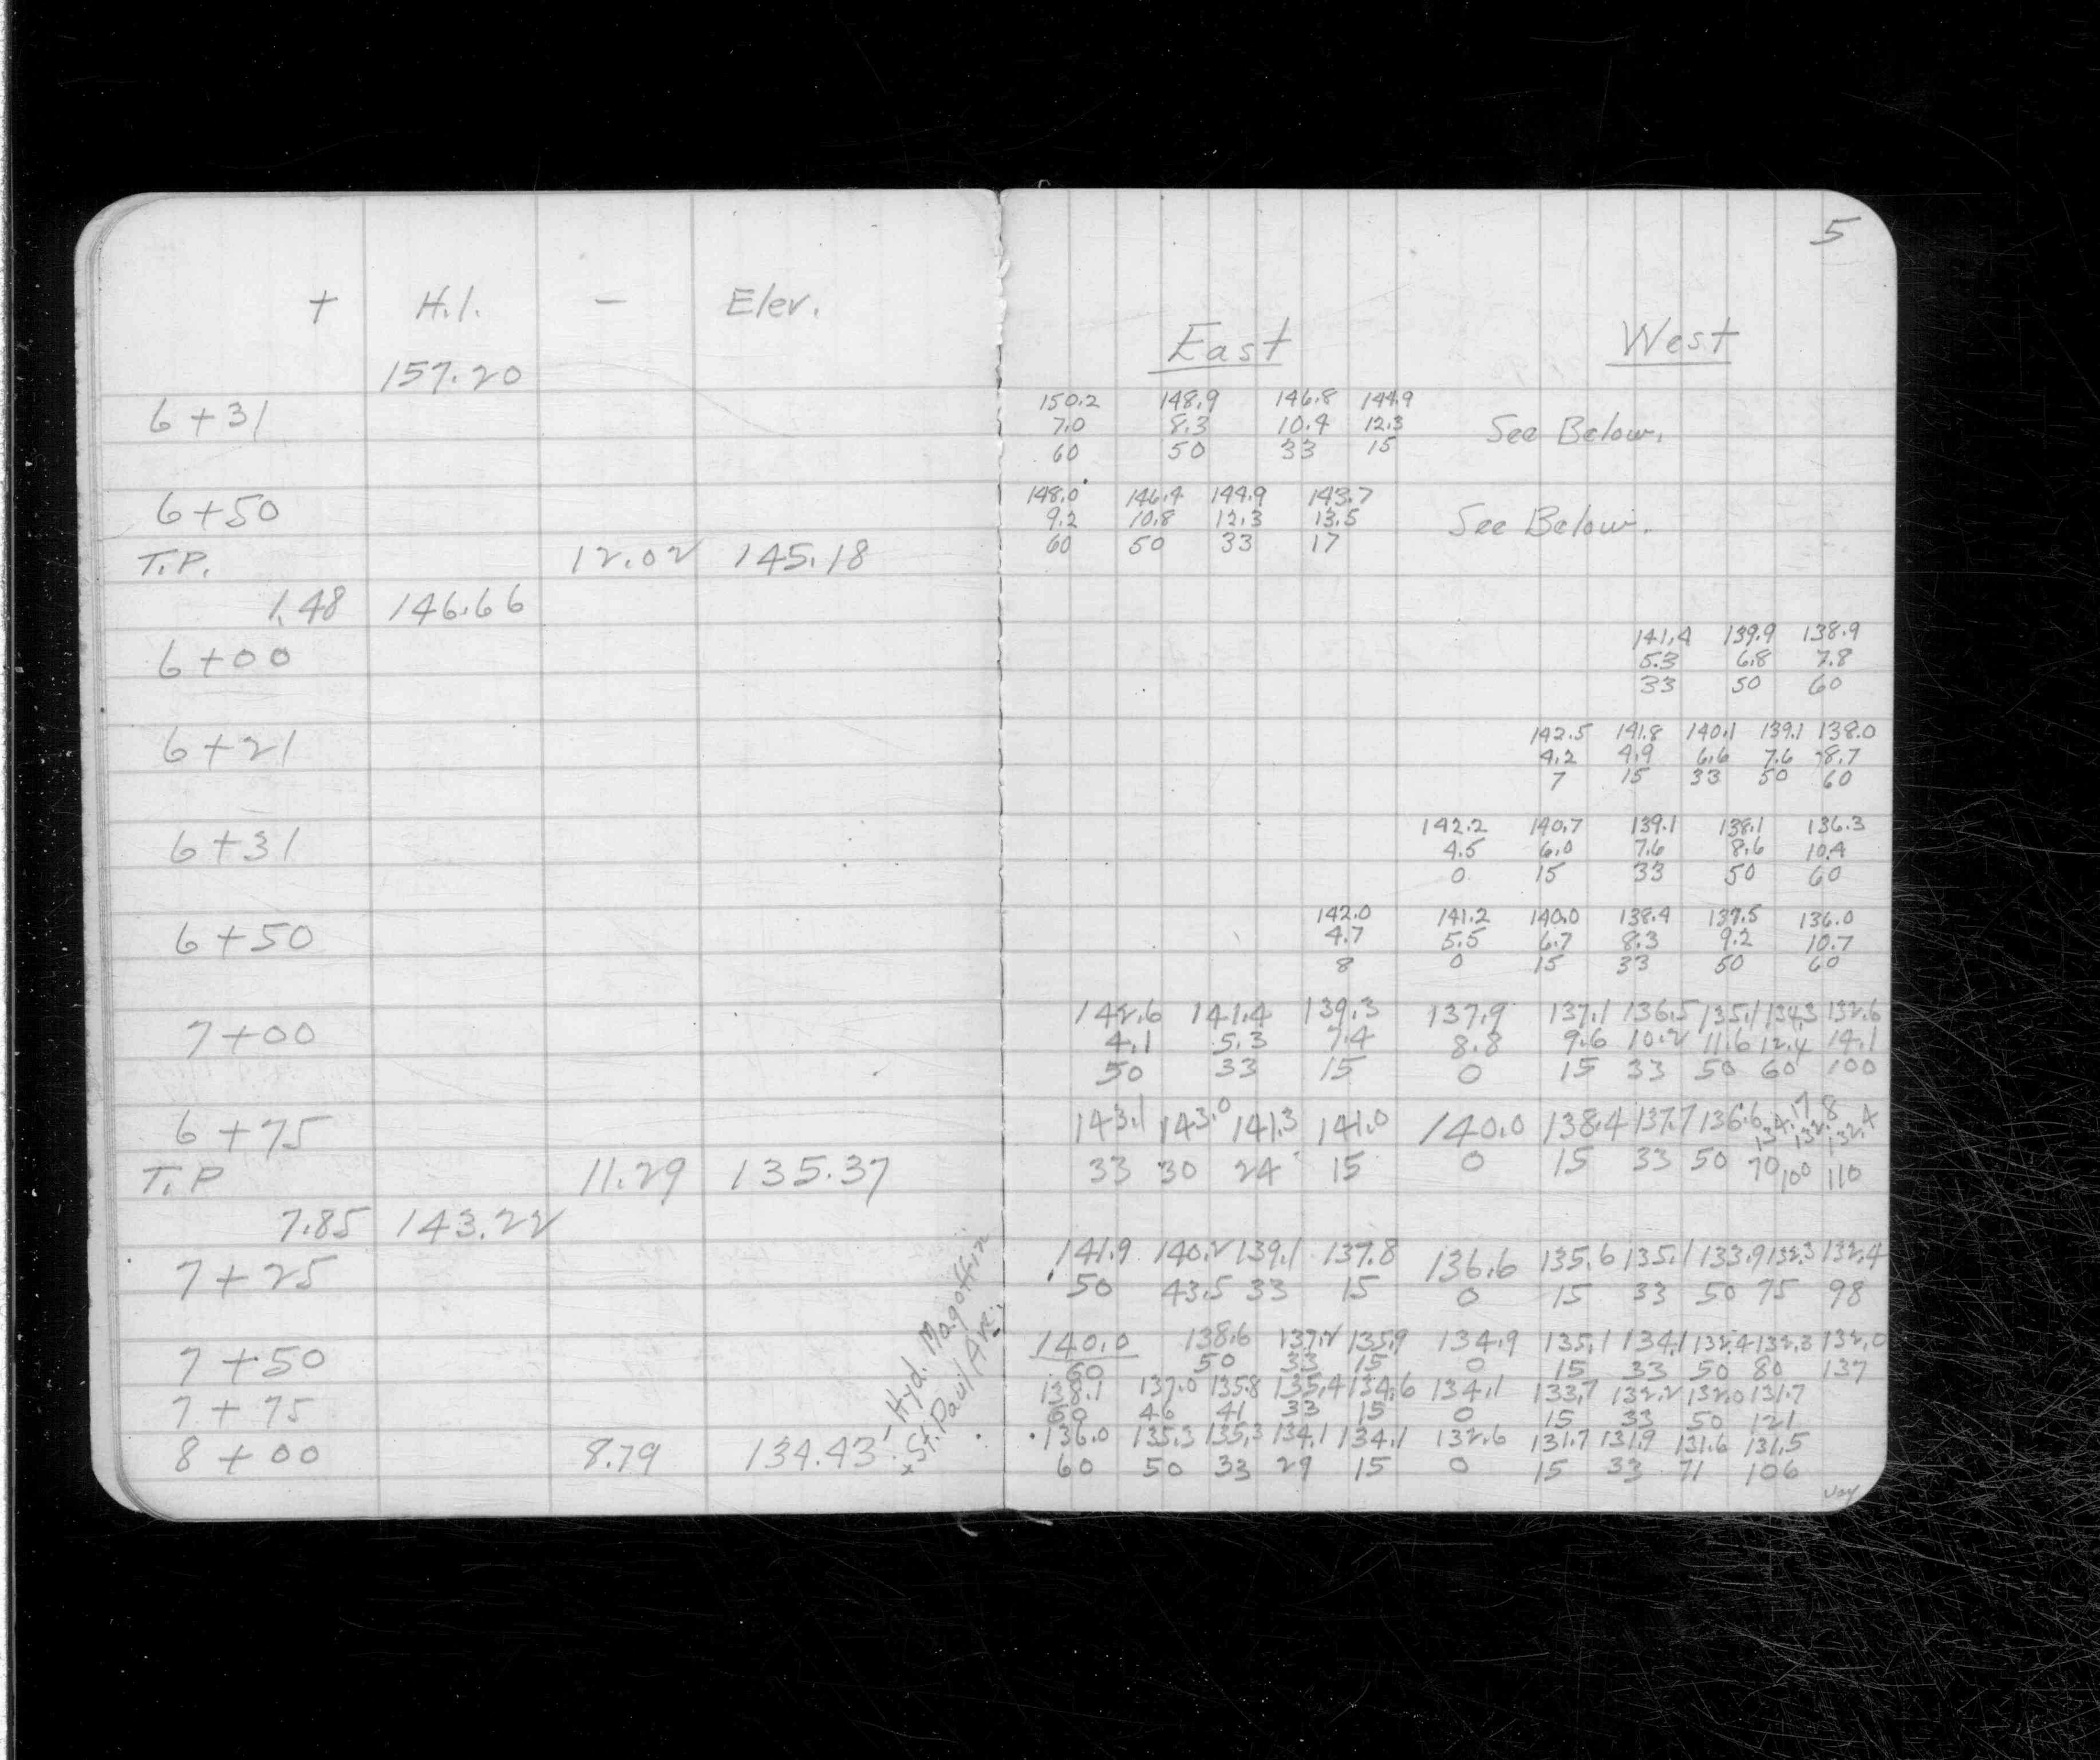 5
+ H.I. - Elev.
East West
157.20
150.2 148.9 146.8 144.9
6+31 7.0 8.3 10.4 12.3 See Below.
60 50 33 15
148.0 146.4 144.9 143.7
6+50 9.2 10.8 12.3 13.5 See Below.
T.P. 12.02 145.18 60 50 33 17
1.48 146.66
141.4 139.9 138.9
6+00 5.3 6.8 7.8
33 50 60
142.5 141.8 140.1 139.1 138.0
6+21 4.2 4.9 6.6 7.6 8.7
7 15 33 50 60
142.2 140.7 139.1 138.1 136.3
6+31 4.5 6.0 7.6 8.6 10.4
0 15 33 50 60
142.0 141.2 140.0 138.4 137.5 136.0
6+50 4.7 5.5 6.7 8.3 9.2 10.7
8 0 15 33 50 60
142.6 141.4 139.3 137.9 137.1 136.5 135.1 134.3 132.6
7+00 4.1 5.3 7.4 8.8 9.6 10.2 11.6 12.4 14.1
50 33 15 0 15 33 50 60 100
6+75 143.1 143.0 141.3 141.0 140.0 138.4 137.7 136.6 134.7 132.8 132.4
T.P 11.29 135.37 33 30 24 15 0 15 33 50 70 100 110
7.85 143.22
141.9 140.2 139.1 137.8 136.6 135.6 135.1 133.9 132.3 132.4
7+25 50 43.5 33 15 0 15 33 50 75 98
140.0 138.6 137.2 135.9 134.9 135.1 134.1 132.4 132.3 132.0
7+50 60 50 33 15 0 15 33 50 80 137
138.1 137.0 135.8 135.4 134.6 134.1 133.7 132.2 132.0 131.7
7+75 60 46 41 33 15 0 15 33 50 121
136.0 135.3 135.3 134.1 134.1 132.6 131.7 131.9 131.6 131.5
8+00 8.79 134.43 60 50 33 29 15 0 15 33 71 106
Hyd. Magoffin
x St. Paul Ave.